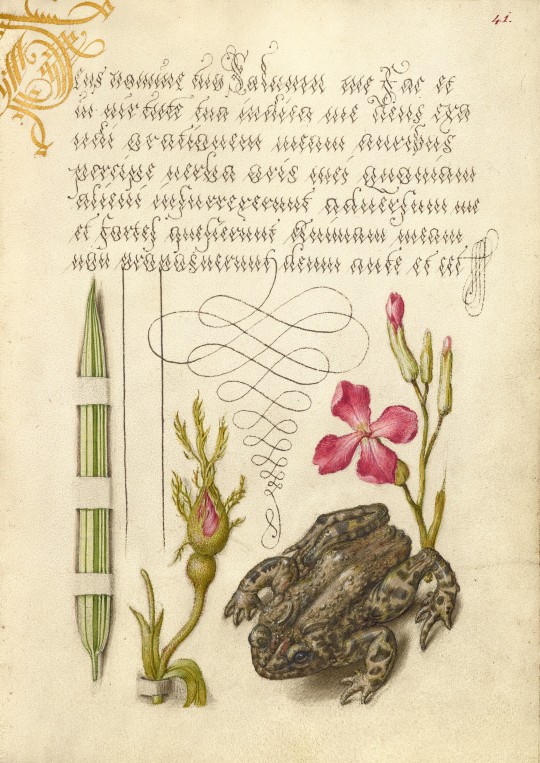 41.
Deus nomine tuo Saluum me Fac et
in uirtute tua iudica me Deus exa
udi orationem meam auribus
percipe uerba oris mei quoniam
alieni insurrexerunt aduersum me
et fortes quesierunt animam meam
non proposuerunt deum ante et cet